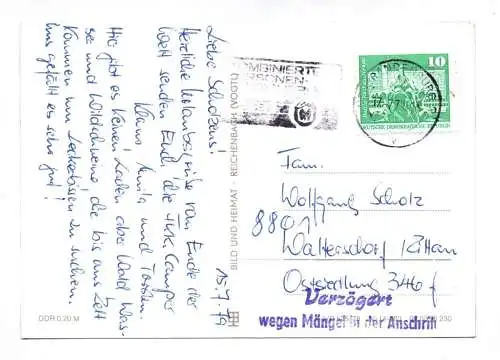 15.7.79
Liebe Scholzens!
Herzliche Urlaubsgrüße vom Ende der
Welt senden Euch die FKK Camper
Klaus, und Torsten.
Hier gibt es keinen Laden aber Wald Was-
ser und Wildschweine, die bis ans Zelt
kommen um Leckerbissen zu suchen.
Uns gefällt es sehr gut!
DDR 0,20 M
BILD UND HEIMAT REICHENBACH (VOGTL)
KOMBINIERTE
PERSONEN-
10
DEUTSCHE DEMOKRATISCHE REPUBLIK
Fam.
Wolfgang Scholz
8801
Waltersdorf / Zittau
Ostsiedlung 346 f
Verzögert
wegen Mängel in der Anschrift